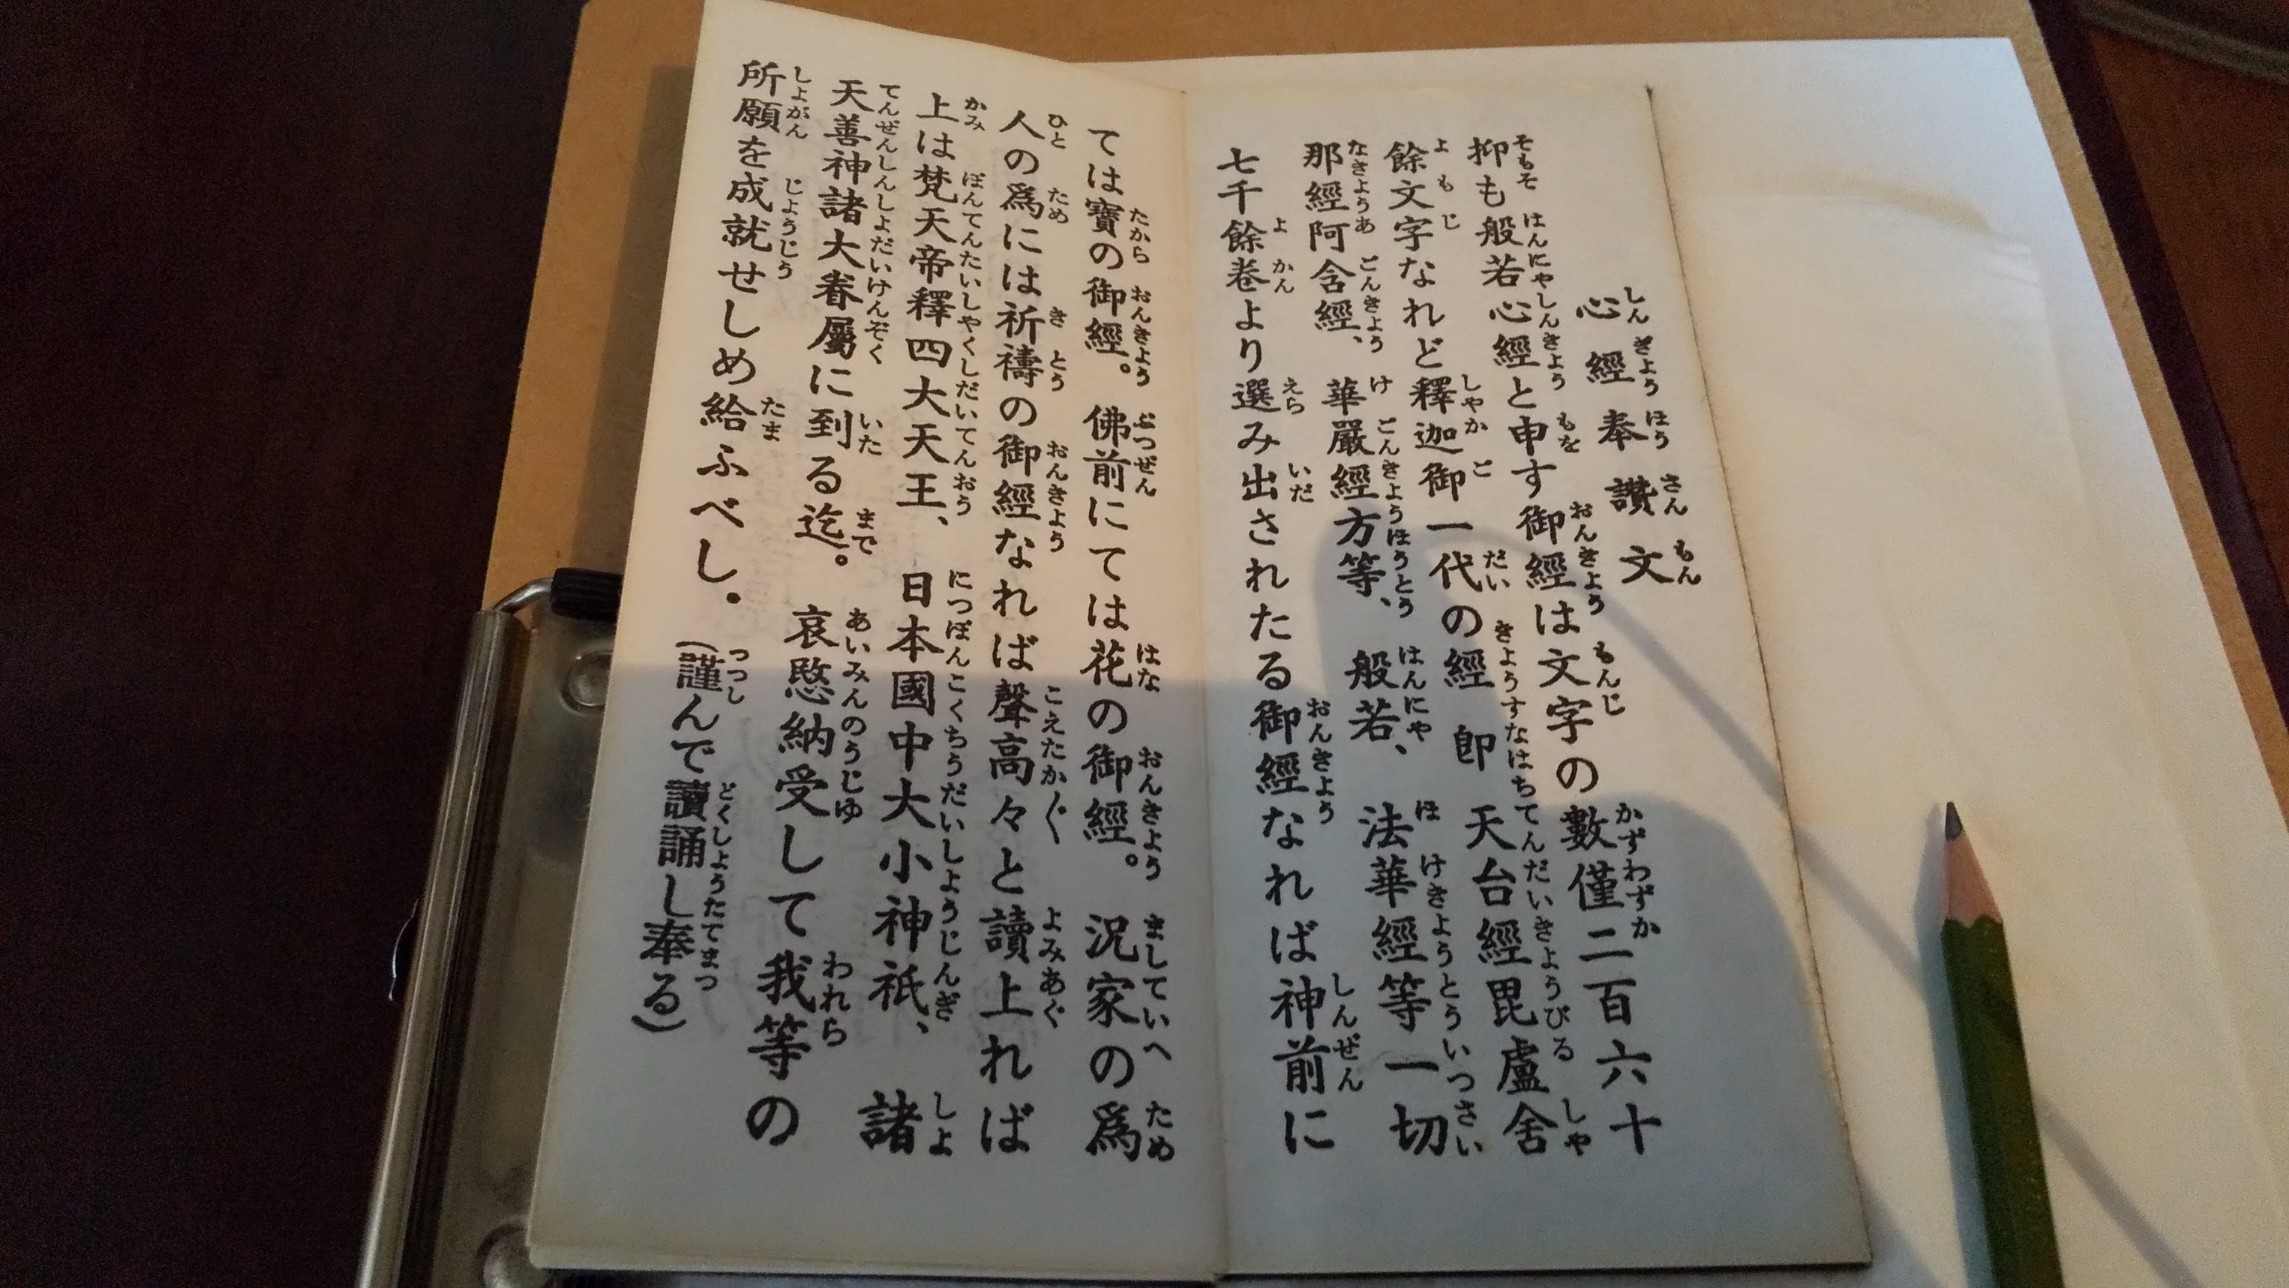 心經奉讃文
抑も般若心經と申す御經は文字の數僅二百六十
餘文字なれど釋迦御一代の經 卽 天台經毘盧舍
那經阿含經、華嚴經方等、般若、法華經等一切
七千餘卷より選み出されたる御經なれば神前に
ては寶の御經。佛前にては花の御經。況家の爲
人の爲には祈禱の御經なれば聲高々と讀上れば
上は梵天帝釋四大天王、日本國中大小神祇、諸
天善神諸大眷屬に到る迄。哀愍納受して我等の
所願を成就せしめ給ふべし。(謹んで讀誦し奉る)